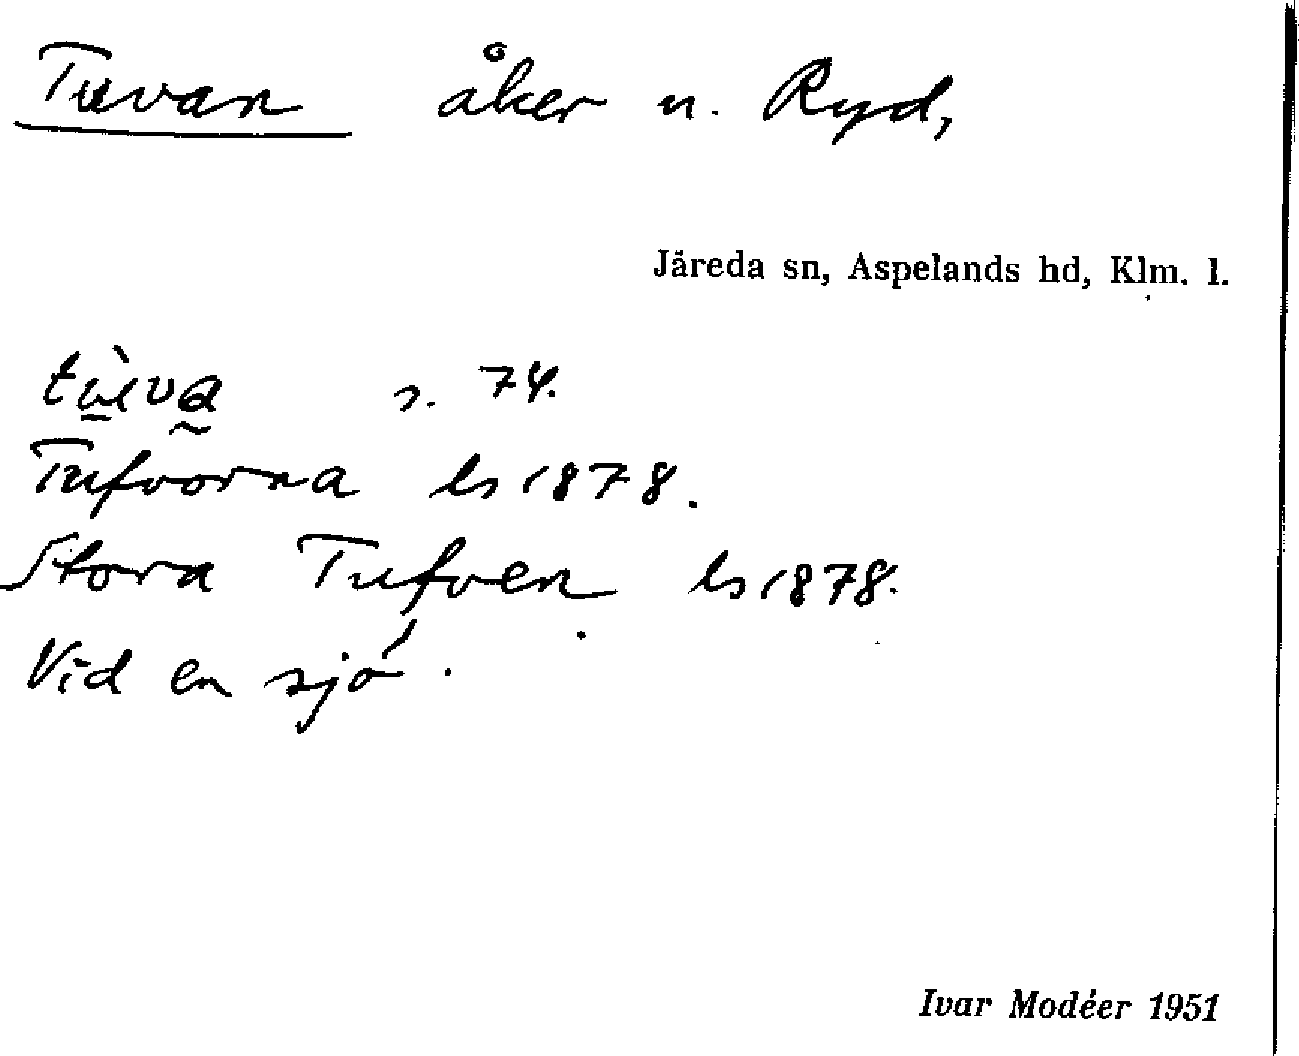 Tuvan åker n. Ryd,
Järeda sn, Aspelands hd, Klm. l.
s. 74.
Tufvorna ls 1878.
Stora Tufven ls 1878.
Vid en sjö.
Ivar Modéer 1951